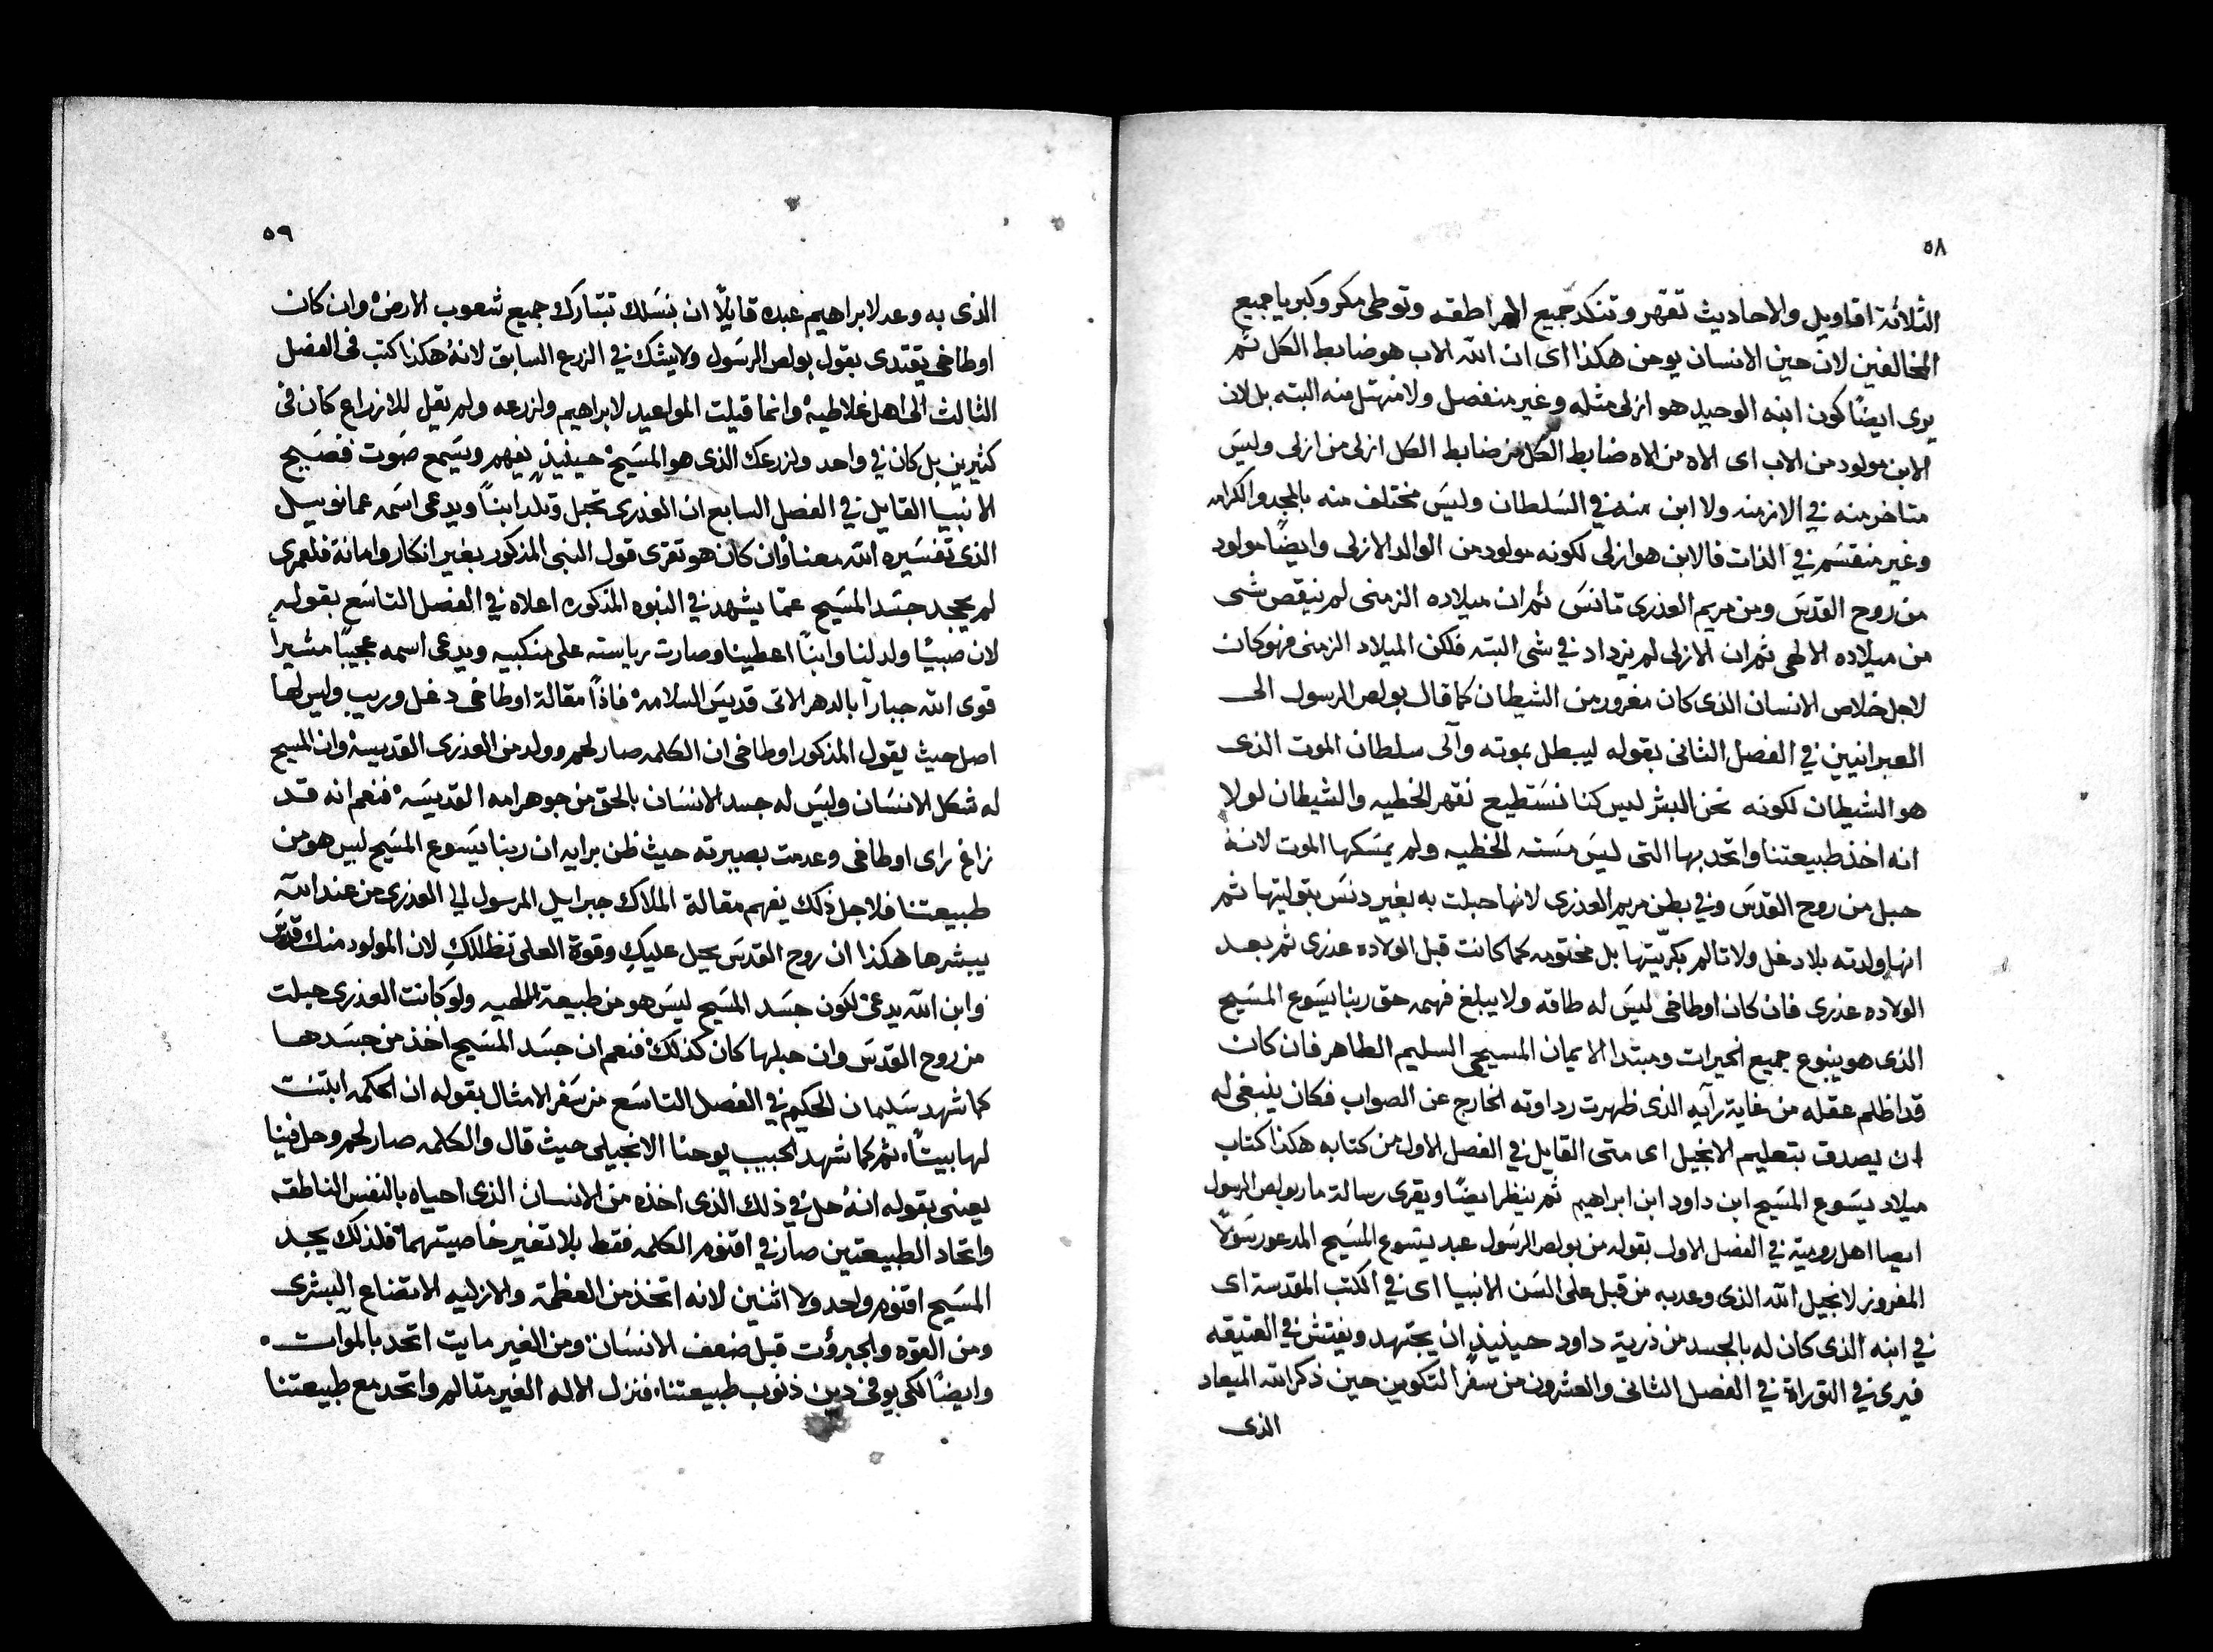 ٥٨
الثلاثة اقاويل والاحاديث تقهر وتنكد جميع الهراطقه وتوطى مكر وكبريا جميع
المخالفين لان حين الانسان يومن هكذا اى ان الله الاب هو ضابط الكل ثم
يرى ايضًا كون ابنه الوحيد هو ازلى مثله وغير منفصل ولا منهتل منه البته بل لان
الابن مولود من الاب اى الاه من الاه ضابط الكل من ضابط الكل ازلى من ازلى وليس
متاخر منه في الازمنه ولا ابن منه في السلطان وليس مختلف منه بالمجد والكرامه
وغير منقسم في الذات فالابن هو ازلى لكونه مولود من الوالد الازلى وايضًا مولود
من روح القدس ومن مريم العذرى تانس ثم ان ميلاده الزمنى لم ينقص شى
من ميلاده الالهى ثم ان الازلى لم يزداد في شى البته فلكن الميلاد الزمنى فهو كان
لاجل خلاص الانسان الذى كان مغرور من الشيطان كما قال بولص الرسول الى
العبرانيين في الفصل الثانى بقوله ليبطل بموته وآلى سلطان الموت الذى
هو الشيطان لكونه نحن البشر ليس كنا نستطيع نقهر الخطيه والشيطان لولا
انه اخذ طبيعتنا واتحد بها التى ليس مسته الخطيه ولم يمسكها الموت لانه
حبل من روح القدس وفي بطن مريم العذرى لانها حبلت به بغير دنس بتوليتها ثم
انها ولدته بلا دغل ولا تالم بكريتها بل مختومه كما كانت قبل الولاده عذرى ثم بعد
الولاده عذرى فان كان اوطاخى ليس له طاقه ولا يبلغ فهمه حق ربنا يسوع المسيح
الذى هو ينبوع جميع الخيرات ومبتدا الايمان المسيحى السليم الطاهر فان كان
قد اظلم عقله من غاية رآيه الذى ظهرت رداوته الخارج عن الصواب فكان ينبغى له
ان يصدق بتعليم الانجيل اى متى القايل في الفصل الاول من كتابه هكذا كتاب
ميلاد يسوع المسيح ابن داود ابن ابراهيم ثم ينظر ايضًا ويقرى رسالة مار بولص الرسول
ايصا اهل رومية في الفصل الاول بقوله من بولص الرسول عبد يسوع المسيح المدعو رسولًا
المفروز لانجيل الله الذى وعد به من قبل على السن الانبيا اى في الكتب المقدسة اى
في ابنه الذى كان له بالجسد من ذرية داود حينيذٍ ان يجتهد ويفتش في العتيقه
فيرى في التوراة في الفصل الثانى والعشرون من سفر التكوين حين ذكر الله الميعاد
الذى
٥٩
الذى به وعد لابراهيم عبده قايلًا ان بنسلك تتبارك جميع شعوب الارض وان كان
اوطاخى يقتدى بقول بولص الرسول ولا يشك في الزرع السابق لانهُ هكذا كتب فى الفصل
الثالث الى اهل غلاطيه وانما قيلت المواعيد لابراهيم ولزرعه ولم يقل للازراع كان فى
كثيرين بل كان في واحد ولزرعك الذى هو المسيح حينيذٍ يفهم ويسمع صوت فصيح
الانبيا القايل في الفصل السابع ان العذرى تحبل وتلد ابنًا ويدعى اسمه عمانوييل
الذى تفسيره الله معنا وان كان هو تقرى قول النبى المذكور بغير انكار وامانة فلعمرى
لم يجحد جسد المسيح عمّا يشهد في النبوه المذكوره اعلاه في الفصل التاسع بقوله
لان صبيًا ولد لنا وابنًا اعطينا وصارت رياسته على منكبيه ويدعى اسمه عجيبًا مشيرا
قوى الله جبارآ بالدهر الاتى قديس السلامه فاذًا مقالة اوطاخى دغل وريب وليس لها
اصل حيث يقول المذكور اوطاخى ان الكلمه صار لحم وولد من العذرى القديسه وان المسيح
له شكل الانسان وليس له جسد الانسان بالحق من جوهر امه القديسه فنعم انه قد
زاغ راى اوطاخى وعدمت بصيرته حيث ظن برايه ان ربنا يسوع المسيح ليس هو من
طبيعتنا فلاجل ذلك يفهم مقالة الملاك جبراييل المرسول الى العذرى من عند الله
يبشرها هكذا ان روح القدس يحل عليكِ وقوة العلى تظللكِ لان المولود منك قدوس
وابن الله يدعى لكون جسد المسيح ليس هو من طبيعة الالهيه ولو كانت العذرى حبلت
من روح القدس وان حبلها كان كذلك فنعم ان جسد المسيح اخذ من جسدها
كما شهد سليمان الحكيم في الفصل التاسع من سفر الامثال بقوله ان الحكمه ابتنت
لها بيتًا ثم كما شهد الحبيب يوحنا الانجيلى حيث قال والكلمه صار لحم وحل فينا
يعنى بقوله انهُ حل في ذلك الذى اخذه من الانسان الذى احياه بالنفس الناطقه
واتحاد الطبيعتين صار في اقنوم الكلمه فقط بلا تغير خاصيتهما فلذلك يجد
المسيح اقنوم واحد ولا اثنين لانه اتخذ من العظمة والازليه الاتضاع البشرى
ومن القوه والجبرؤت قبل ضعف الانسان ومن الغير مايت اتحد بالموات
وايضًا لكى يوفى دين ذنوب طبيعتنا فنزل الاله الغير متالم واتحد مع طبيعتنا